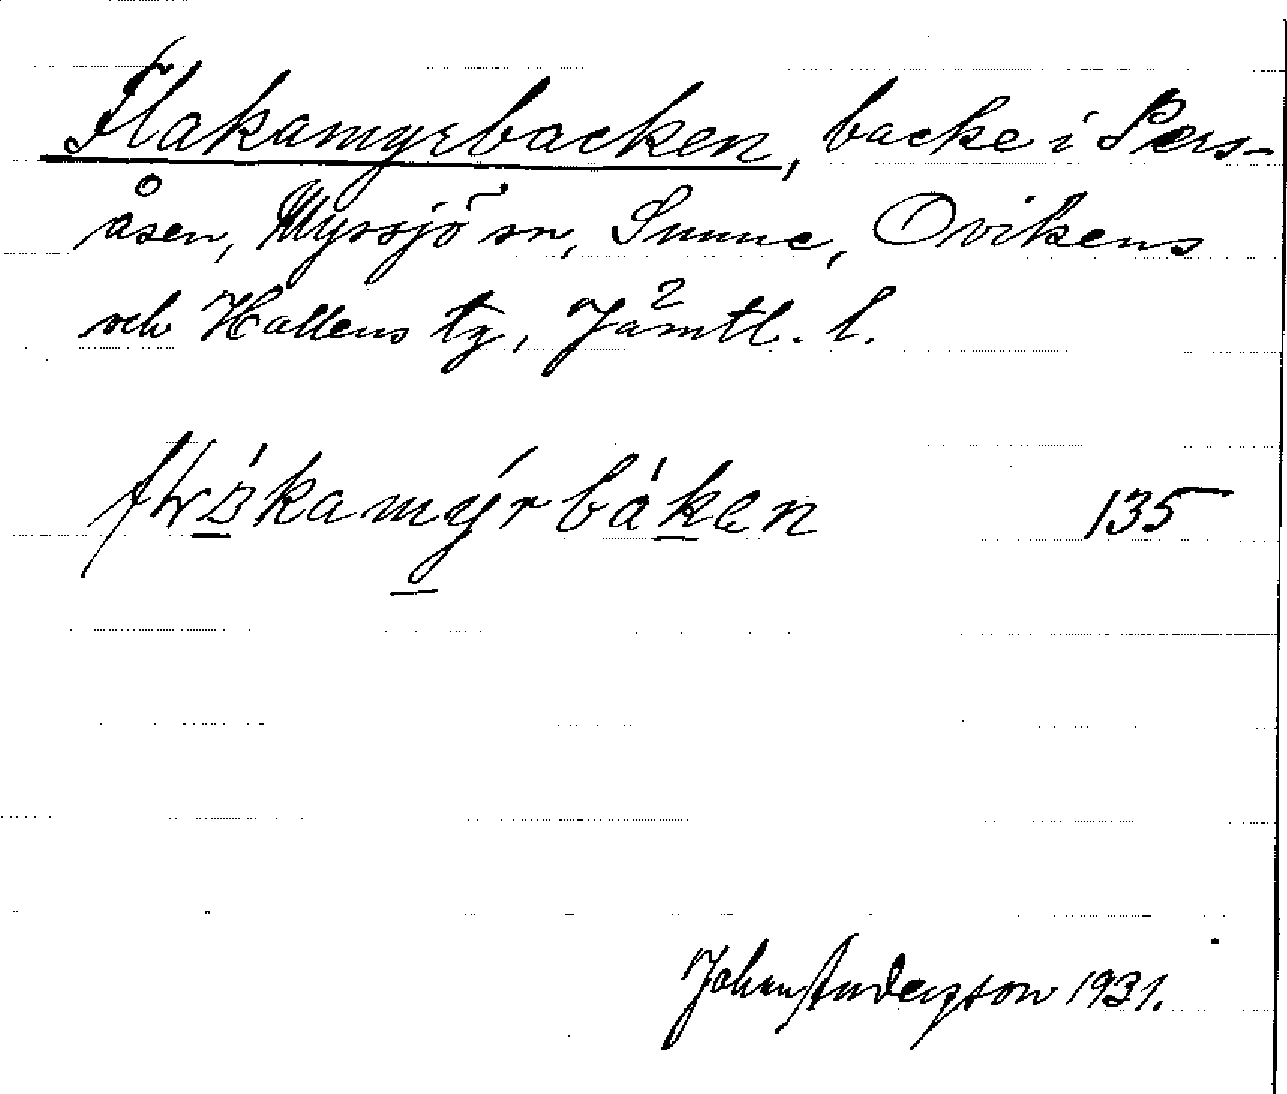 Flakamyrbacken, backe i Pers-
åsen, Myssjö sn, Sunne, Ovikens
och Hallens tg, Jämtl. l.
135
John Anderzson 1931.